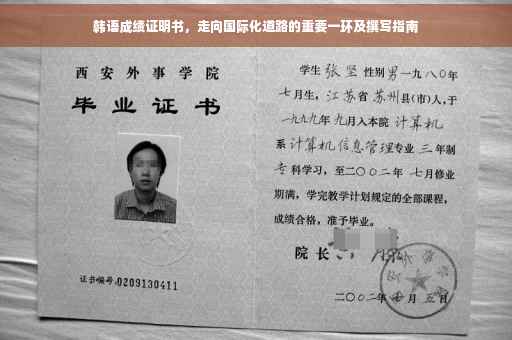 韩语成绩证明书，走向国际化道路的重要一环及撰写指南
西安外事学院
毕业证书
证书编号:0209130411
学生 张坚 性别 男 一九八〇年
七月生，江苏省 苏州 县(市)人，于
一九九九年 九月入本院 计算机
系 计算机信息管理专业 三 年制
专科学习，至二〇〇二年 七月修业
期满，学完教学计划规定的全部课程，
成绩合格，准予毕业。
院长
二〇〇二年 七月 五日